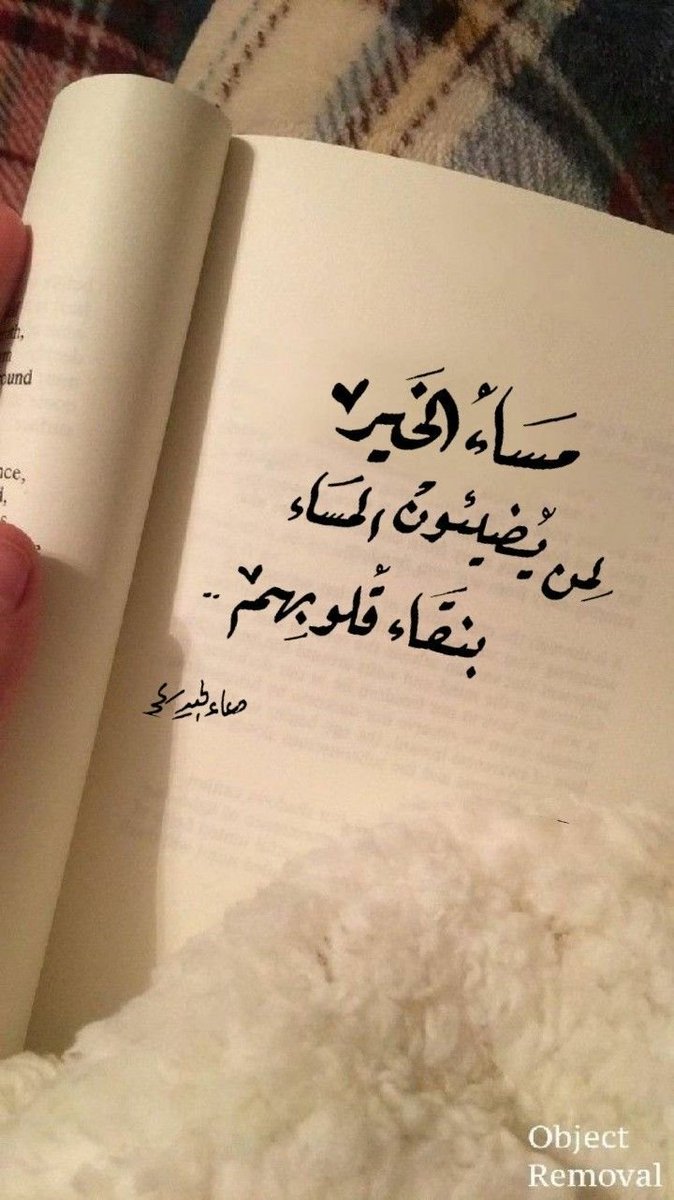 th,
ound
nce,
d,
مَسَاءُ الخَير
لِمن يُضيئون المسَاء
بنقَاء قُلوبِهم ..
Object
Removal